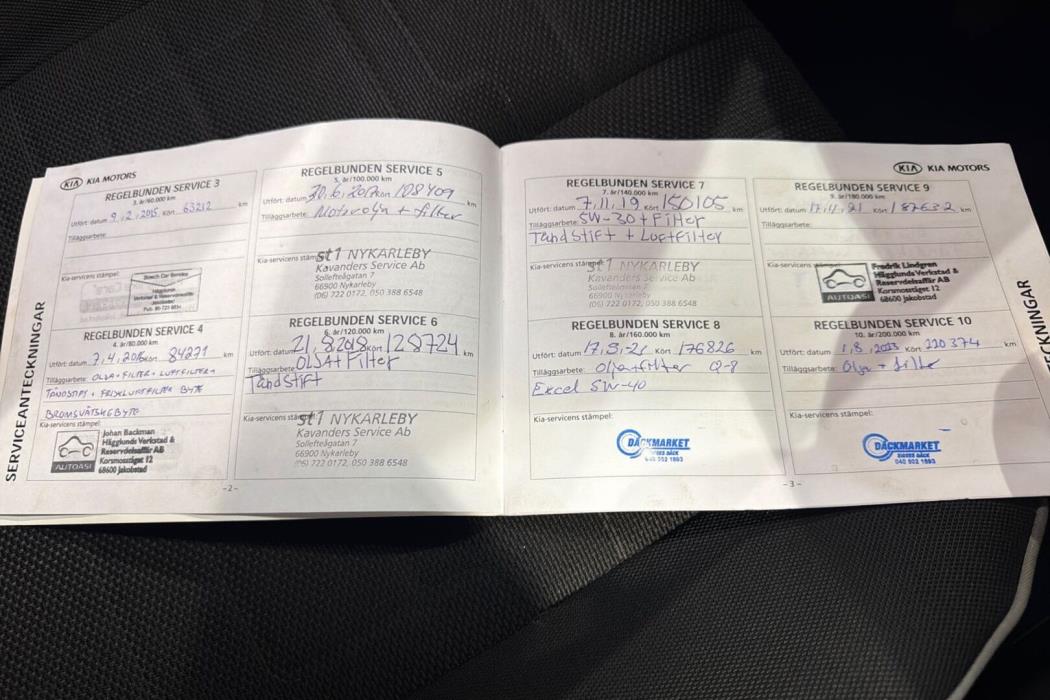 SERVICEANTECKNINGAR
KIA KIA MOTORS
REGELBUNDEN SERVICE 3
3. år/60.000 km
Utfört: datum 9.2.2015 Kört 63212 km
Tilläggsarbete:
Bosch Car Service
REGELBUNDEN SERVICE 4
4. år/80.000 km
Utfört: datum 7.4.2016 Kört 84271 km
Tilläggsarbete: OLJA+FILTER+LUFTFILTER+
TÄNDSTIFT + FRISKLUFTFILTER BYTE
BROMSVÄTSKEBYTE
Kia-servicens stämpel:
AUTOASI
Johan Backman
Hägglunds Verkstad &
Reservdelsaffär AB
Korsmosstiget 12
68600 Jakobstad
REGELBUNDEN SERVICE 5
5. år/100.000 km
Utfört: datum 20.6.2017 Kört 108409
Tilläggsarbete: Motorolja + filter
Kia-servicens stämpel:
st1 NYKARLEBY
Kavanders Service Ab
Sollefteågatan 7
66900 Nykarleby
(06) 722 0172, 050 388 6548
REGELBUNDEN SERVICE 6
6. år/120.000 km
Utfört: datum 21.8.2018 Kört 128724 km
Tilläggsarbete: OLJA+Filter
Tändstift
Kia-servicens stämpel:
st1 NYKARLEBY
Kavanders Service Ab
Sollefteågatan 7
66900 Nykarleby
(06) 722 0172, 050 388 6548
-2-
KIA KIA MOTORS
REGELBUNDEN SERVICE 7
7. år/140.000 km
Utfört: datum 7.11.19 Kört 150105 km
Tilläggsarbete: 5W-30+Filter
Tändstift + Luftfilter
Kia-servicens stämpel:
st1 NYKARLEBY
Kavanders Service Ab
Sollefteågatan 7
66900 Nykarleby
(06) 722 0172, 050 388 6548
REGELBUNDEN SERVICE 8
8. år/160.000 km
Utfört: datum 17.3.21 Kört 176826 km
Tilläggsarbete: Olja+filter Q-8
Excel 5W-40
Kia-servicens stämpel:
DÄCKMARKET
040 502 1893
REGELBUNDEN SERVICE 9
9. år/180.000 km
Utfört: datum 17.11.21 Kört 187632 km
Tilläggsarbete:
Kia-servicens
AUTOASI
Fredrik Lindgren
Hägglunds Verkstad &
Reservdelsaffär AB
Korsmosstiget 12
68600 Jakobstad
REGELBUNDEN SERVICE 10
10. år/200.000 km
Utfört: datum 1.8.2023 Kört 220374 km
Tilläggsarbete: Olja + filter
Kia-servicens stämpel:
DÄCKMARKET
040 502 1893
-3-